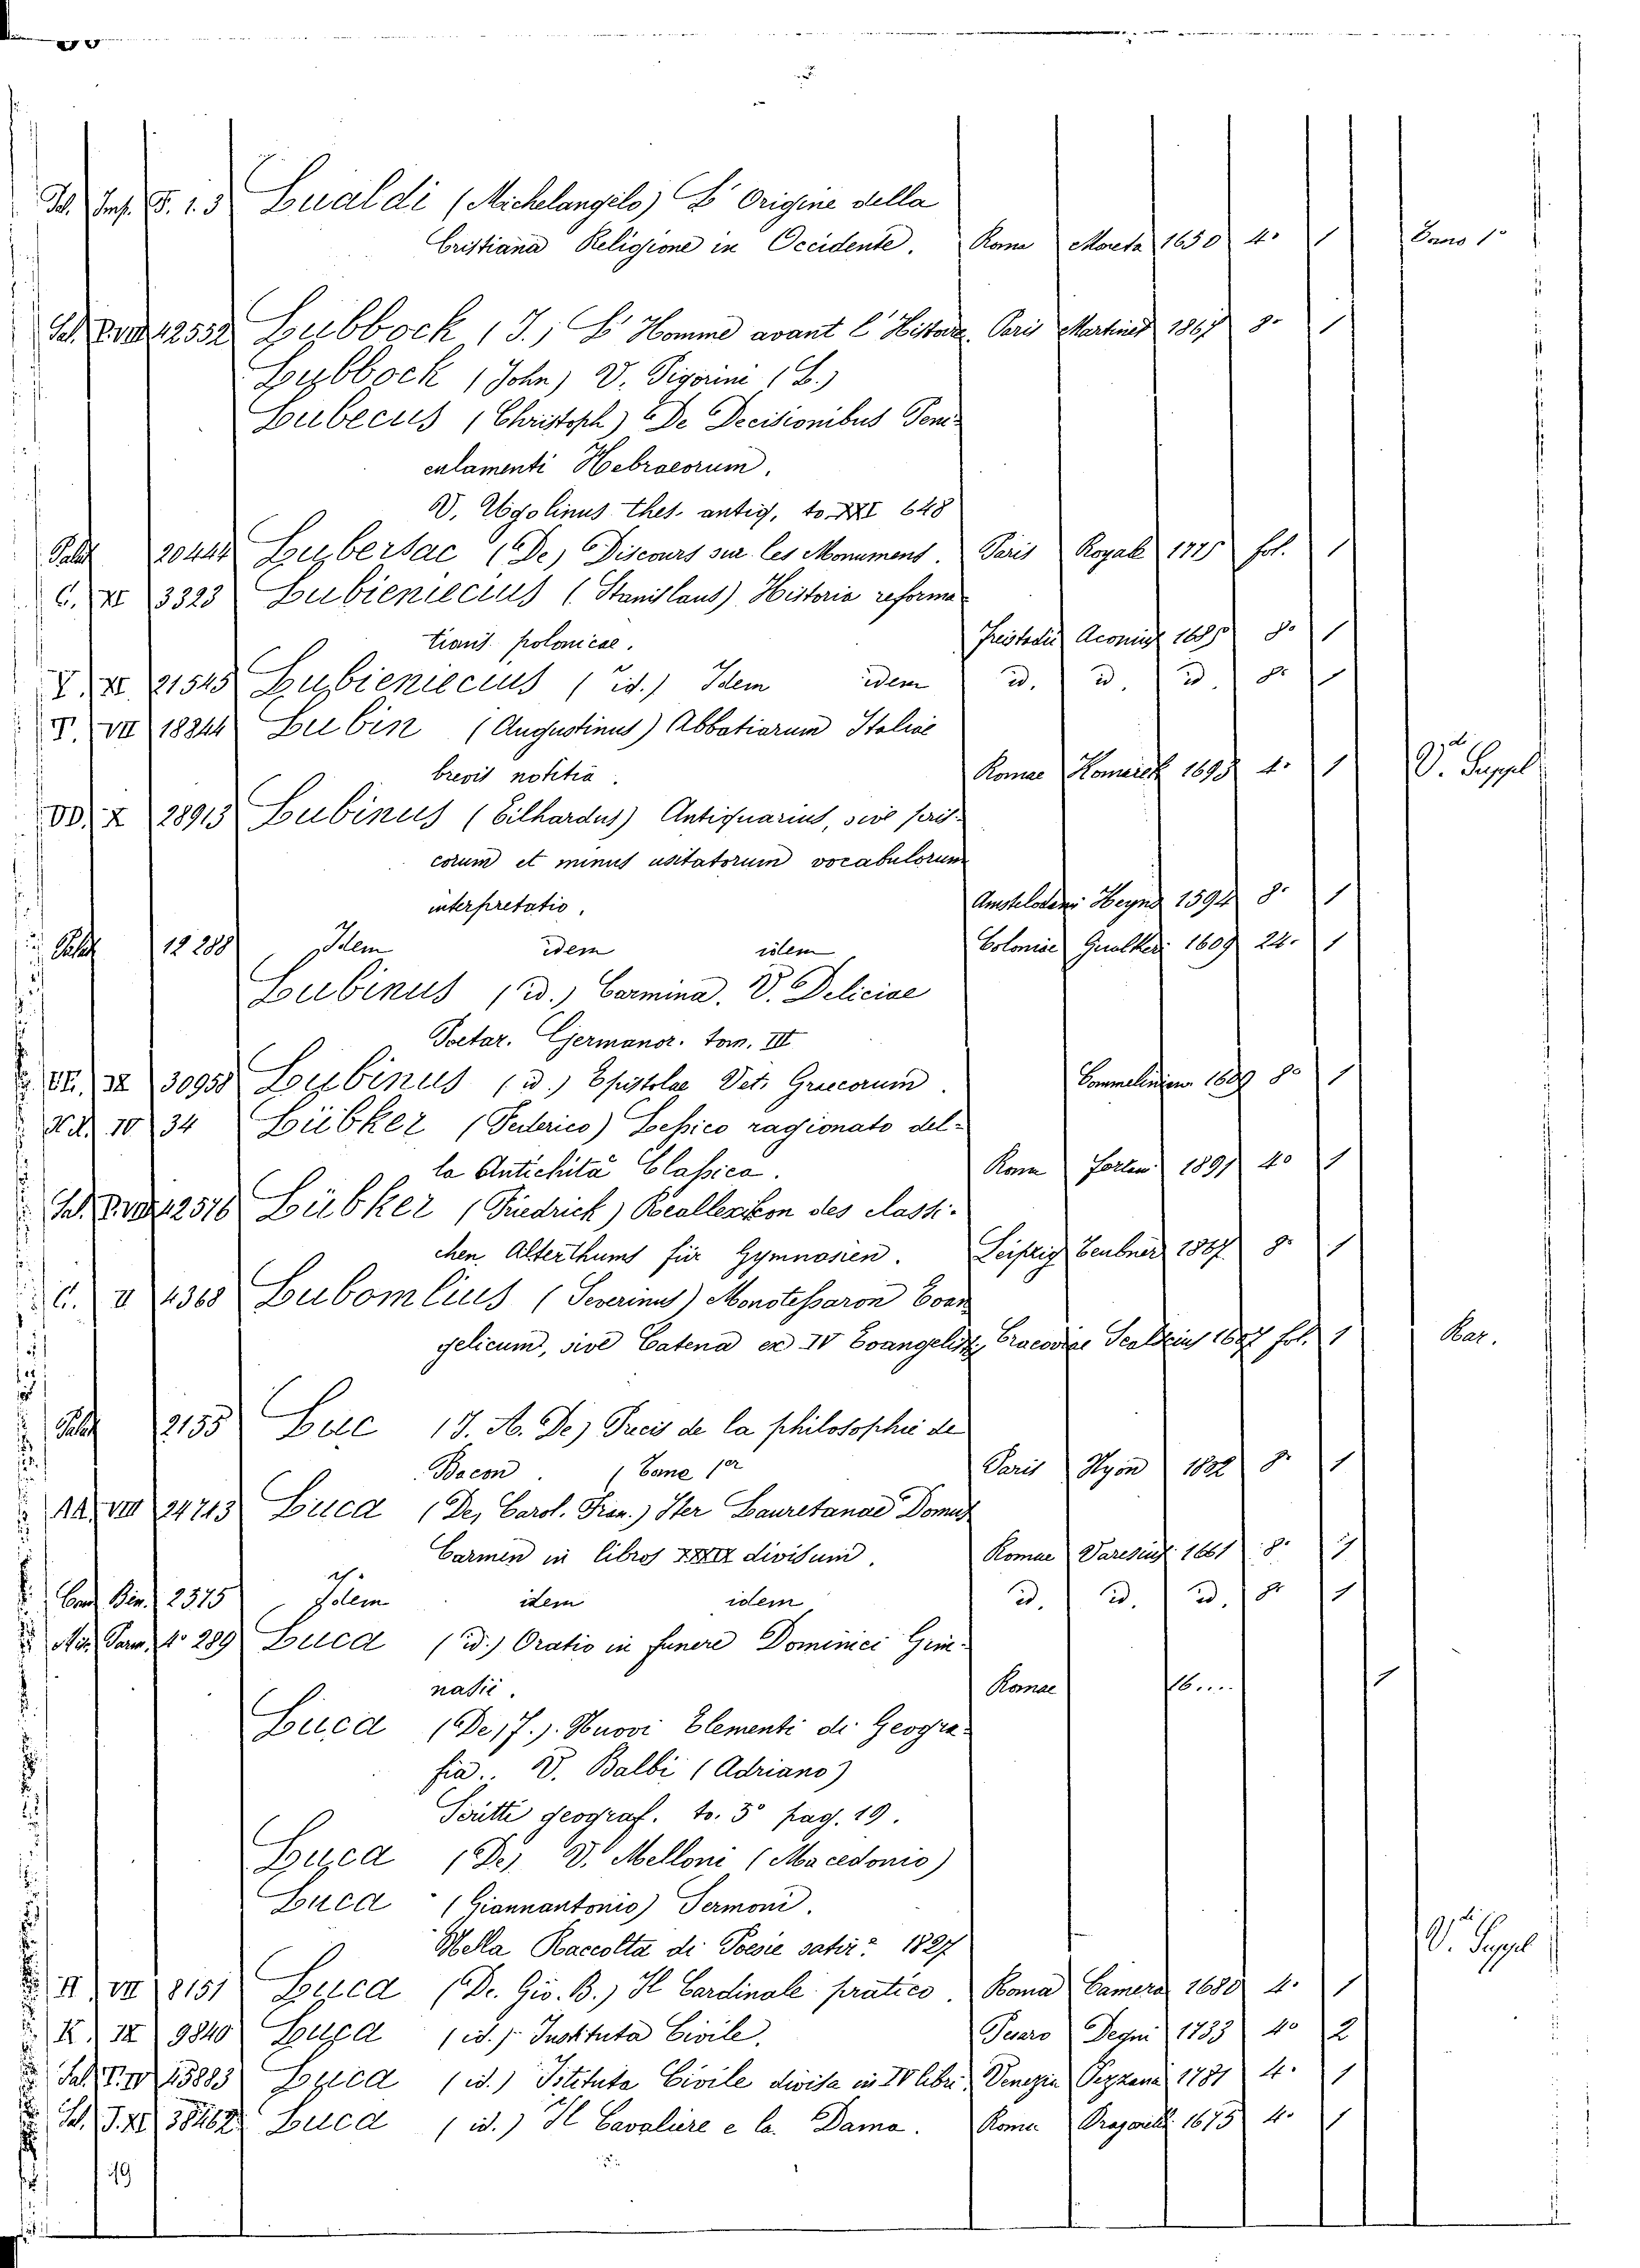 Lualdi (Michelangelo) L' Origine della
Cristiana Religione in Occidente. Roma Moneta 1650 4° 1 Tomo 1°
12532 Lubbock (J.) L' Homme avant l' Histoire. Paris Martinet 1867 8° 1
Lubbock (John) V. Pigorini (L.)
Lubecus (Christoph) De Decisionibus Peni-
culamenti Hebraeorum.
V. Ugolinus thes. antiq, to. XXI 648
Palat 20444 Lubersac (De) Discours sur les Monument. Paris Royale 1775 fol. 1
C. XI 3323 Lubieniecius (Stanislaus) Historia reforma-
tionis polonicae. 8° 1
V. XI 21545 Lubieniecius (id.) Idem idem id. id. id. 8° 1
T. VII 18244 Lubin (Augustinus) Abbatiarum Italiae
brevis notitia. Romae Komarek 1693 4° 1 V.di Suppl
VV. X 28913 Lubinus (Eilhardus) Antiquarius, sive pris-
corum et minus usitatorum vocabulorum
interpretatio. Amstelodami Heynd 1594 8° 1
Palat 12288 Idem idem idem Coloniae Gualtheri 1609 24° 1
Lubinus (id.) Carmina. V. Deliciae
Poetar. Germanor. tom. III
30958 Lubinus (id.) Epistolae Vet. Graecorum. Commelinian 1609 8° 1
IV 34 Lübker (Federico) Lessico ragionato del-
la Antichità Classica. Roma Forzan 1891 4° 1
12576 Lübker (Friedrich) Reallexikon des classi-
chen Alterthums für Gymnasien. Leipzig Teubner 1867 8° 1
C. II 4368 Lubomlius (Severinus) Monotessaron Evan
gelicum, sive Catena ex IV Evangelist, Cracoviae 1607 fol. 1 Rar.
Palat 2155 Luc (J. A. De) Precis de la philosophie de
Bacon. (Tome 1er Paris Nyon 1802 8° 1
AA. VIII 24713 Luca (De, Carol. Fran.) Iter Lauretanae Domus
Carmen in libros XXIX divisum. Romae Varesius 1661 8° 1
2375 Idem idem idem id. id. id. 8° 1
4° 289 Luca (id.) Oratio in funere Dominici Gim-
nasii. Romae 16.... 1
Luca (De, F.). Nuovi Elementi di Geogra-
fia. V. Balbi (Adriano)
Scritti geograf. to. 5° pag. 19.
Luca (De) V. Melloni (Macedonio)
Luca (Giannantonio) Sermoni.
Nella Raccolta di Poesie satir: 1827 V.di Suppl
II VII 8151 Luca (De. Gio. B.) Il Cardinale pratico. Roma Camera 1680 4° 1
K. IX 9840 Luca (id.) Instituta Civile. Pesaro Degni 1733 4° 2
15883 Luca (id.) Istituta Civile divisa in IV libri. Venezia Pezzana 1781 4° 1
38462 Luca (id.) Il Cavaliere e la Dama. Roma Dragonelli 1675 4° 1
19